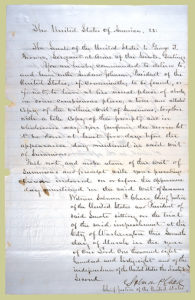 The United States of America, ss:
The Senate of the United States to George T.
Brown, Sergeant at Arms of the Senate, Greeting:
You are hereby commanded to deliver to
and leave with Andrew Johnson, President of the
United States, if conveniently to be found, or
if not, to leave at his usual place of abode
in some conspicuous place, a true and attested
copy of the within writ of summons, together
with a like copy of this precept; and in
whichsoever way you perform the service
let it be done at least days before the
appearance day mentioned in said writ
of summons.
Fail not, and make return of this writ of
summons and precept with your proceedings
thereon indorsed, on or before the appearance
day mentioned in the said writ of summons.
Witness Salmon P. Chase, Chief Justice
of the United States, and President of
said Senate sitting on the trial
of the said impeachment at the
City of Washington this seventh
day of March in the year
of our Lord One thousand eight
hundred and sixty-eight and of the
independence of the United States the ninety
second.
Chief Justice of the United States